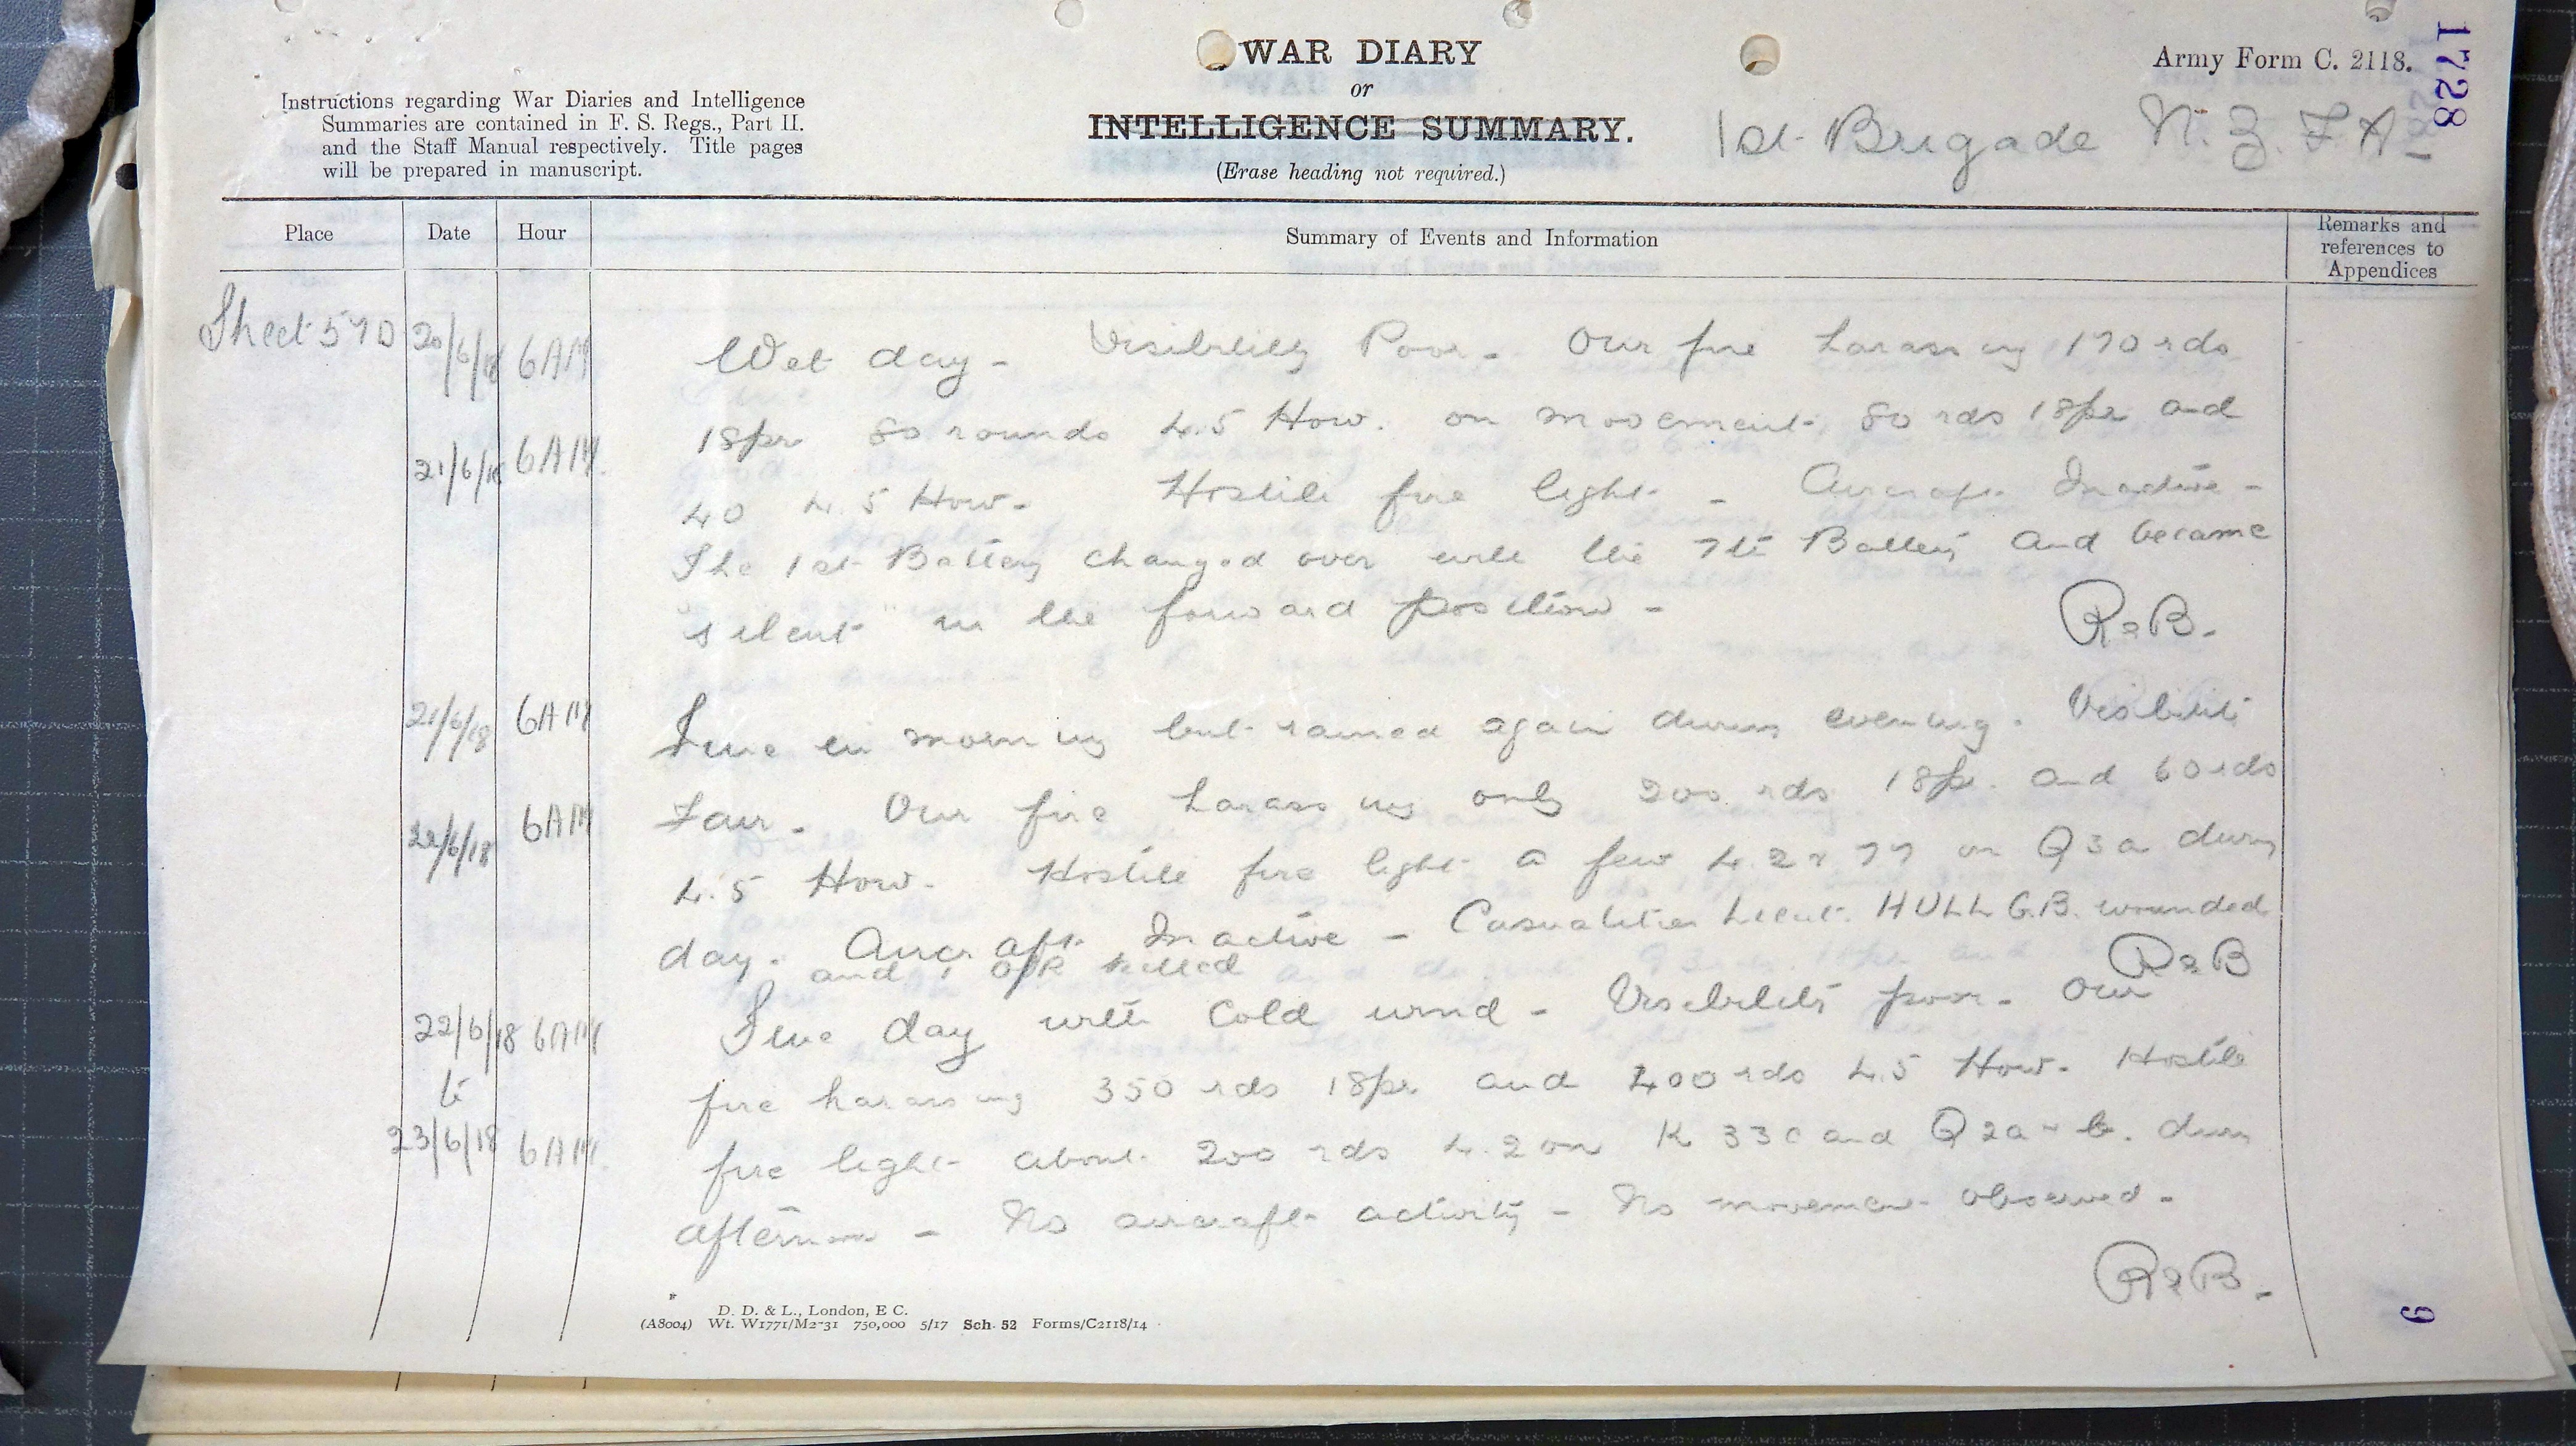 1728
WAR DIARY
or
INTELLIGENCE SUMMARY.
(Erase heading not required.)
Army Form C. 2118.
1st Brigade N.Z.F.A.
Instructions regarding War Diaries and Intelligence
Summaries are contained in F. S. Regs., Part II.
and the Staff Manual respectively. Title pages
will be prepared in manuscript.
Place Date Hour Summary of Events and Information Remarks and references to Appendices
Sheet 57D 20/6/18 6AM Wet day - Visibility Poor - Our fire harassing 170 rds
18pr 80 rounds 4.5 How. on movement 80 rds 18pr and
21/6/18 6AM. 40 4.5 How. Hostile fire light - Aircraft Inactive -
The 1st Battery changed over with the 7th Battery and became
"silent" in the forward position -
R B.
21/6/18 6AM Fine in morning but rained again during evening. Visibility
Fair. Our fire harassing only 200 rds 18pr. and 60 rds
22/6/18 6AM 4.5 How. Hostile fire light a few 4.2 & 77 on Q3a during
day. Aircraft Inactive - Casualties Lieut. HULL G.B. wounded
and 1 O/R killed
R B
22/6/18 6AM Fine day with cold wind - Visibility poor - Our
to fire harassing 350 rds 18pr and 400 rds 4.5 How. Hostile
23/6/18 6AM. fire light about 200 rds 4.2 on K 33c and Q 2a & b. during
afternoon - No aircraft activity - No movement observed -
R B.
D. D. & L., London, E C.
(A8004) Wt. W1771/M2-31 750,000 5/17 Sch. 52 Forms/C2118/14
9